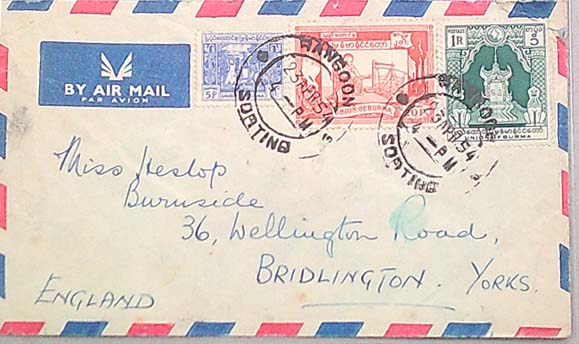 BY AIR MAIL
PAR AVION
5P
UNION OF BURMA
20P
POSTAGE
1R
UNION OF BURMA
RANGOON
23APR54
4 - PM
SORTING
RANGOON
23APR54
4 - PM
SORTING
Miss Heslop
Burnside
36, Wellington Road,
BRIDLINGTON. YORKS.
ENGLAND